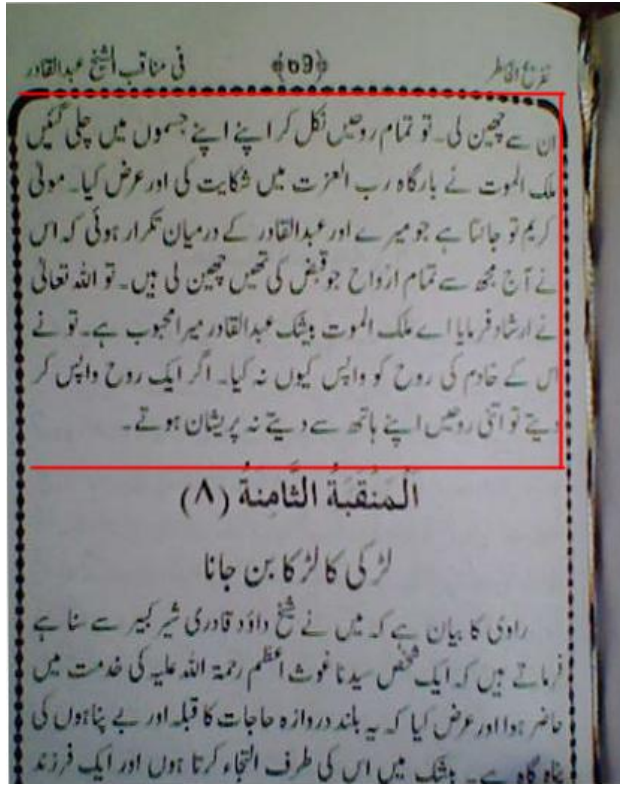 تفریح الخاطر ﴿69﴾ فی مناقب الشیخ عبدالقادر
ان سے چھین لی۔ تو تمام روحیں نکل کر اپنے اپنے جسموں میں چلی گئیں
ملک الموت نے بارگاہ رب العزت میں شکایت کی اور عرض کیا۔ مولیٰ
کریم تو جانتا ہے جو میرے اور عبدالقادر کے درمیان تکرار ہوئی کہ اس
نے آج مجھ سے تمام ارواح جو قبض کی تھیں چھین لی ہیں۔ تو اللہ تعالیٰ
نے ارشاد فرمایا اے ملک الموت بیشک عبدالقادر میرا محبوب ہے۔ تو نے
اس کے خادم کی روح کو واپس کیوں نہ کیا۔ اگر ایک روح واپس کر
دیتے تو اتنی روحیں اپنے ہاتھ سے دیتے نہ پریشان ہوتے۔
اَلْمَنْقَبَةُ الثَّامِنَةُ (۸)
لڑکی کا لڑکا بن جانا
راوی کا بیان ہے کہ میں نے شیخ داؤد قادری شیر کبیر سے سنا ہے
فرماتے ہیں کہ ایک شخص سیدنا غوث اعظم رحمۃ اللہ علیہ کی خدمت میں
حاضر ہوا اور عرض کیا کہ یہ بلند دروازہ حاجات کا قبلہ اور بے پناہوں کی
پناہ گاہ ہے۔ بیشک میں اس کی طرف التجاء کرتا ہوں اور ایک فرزند